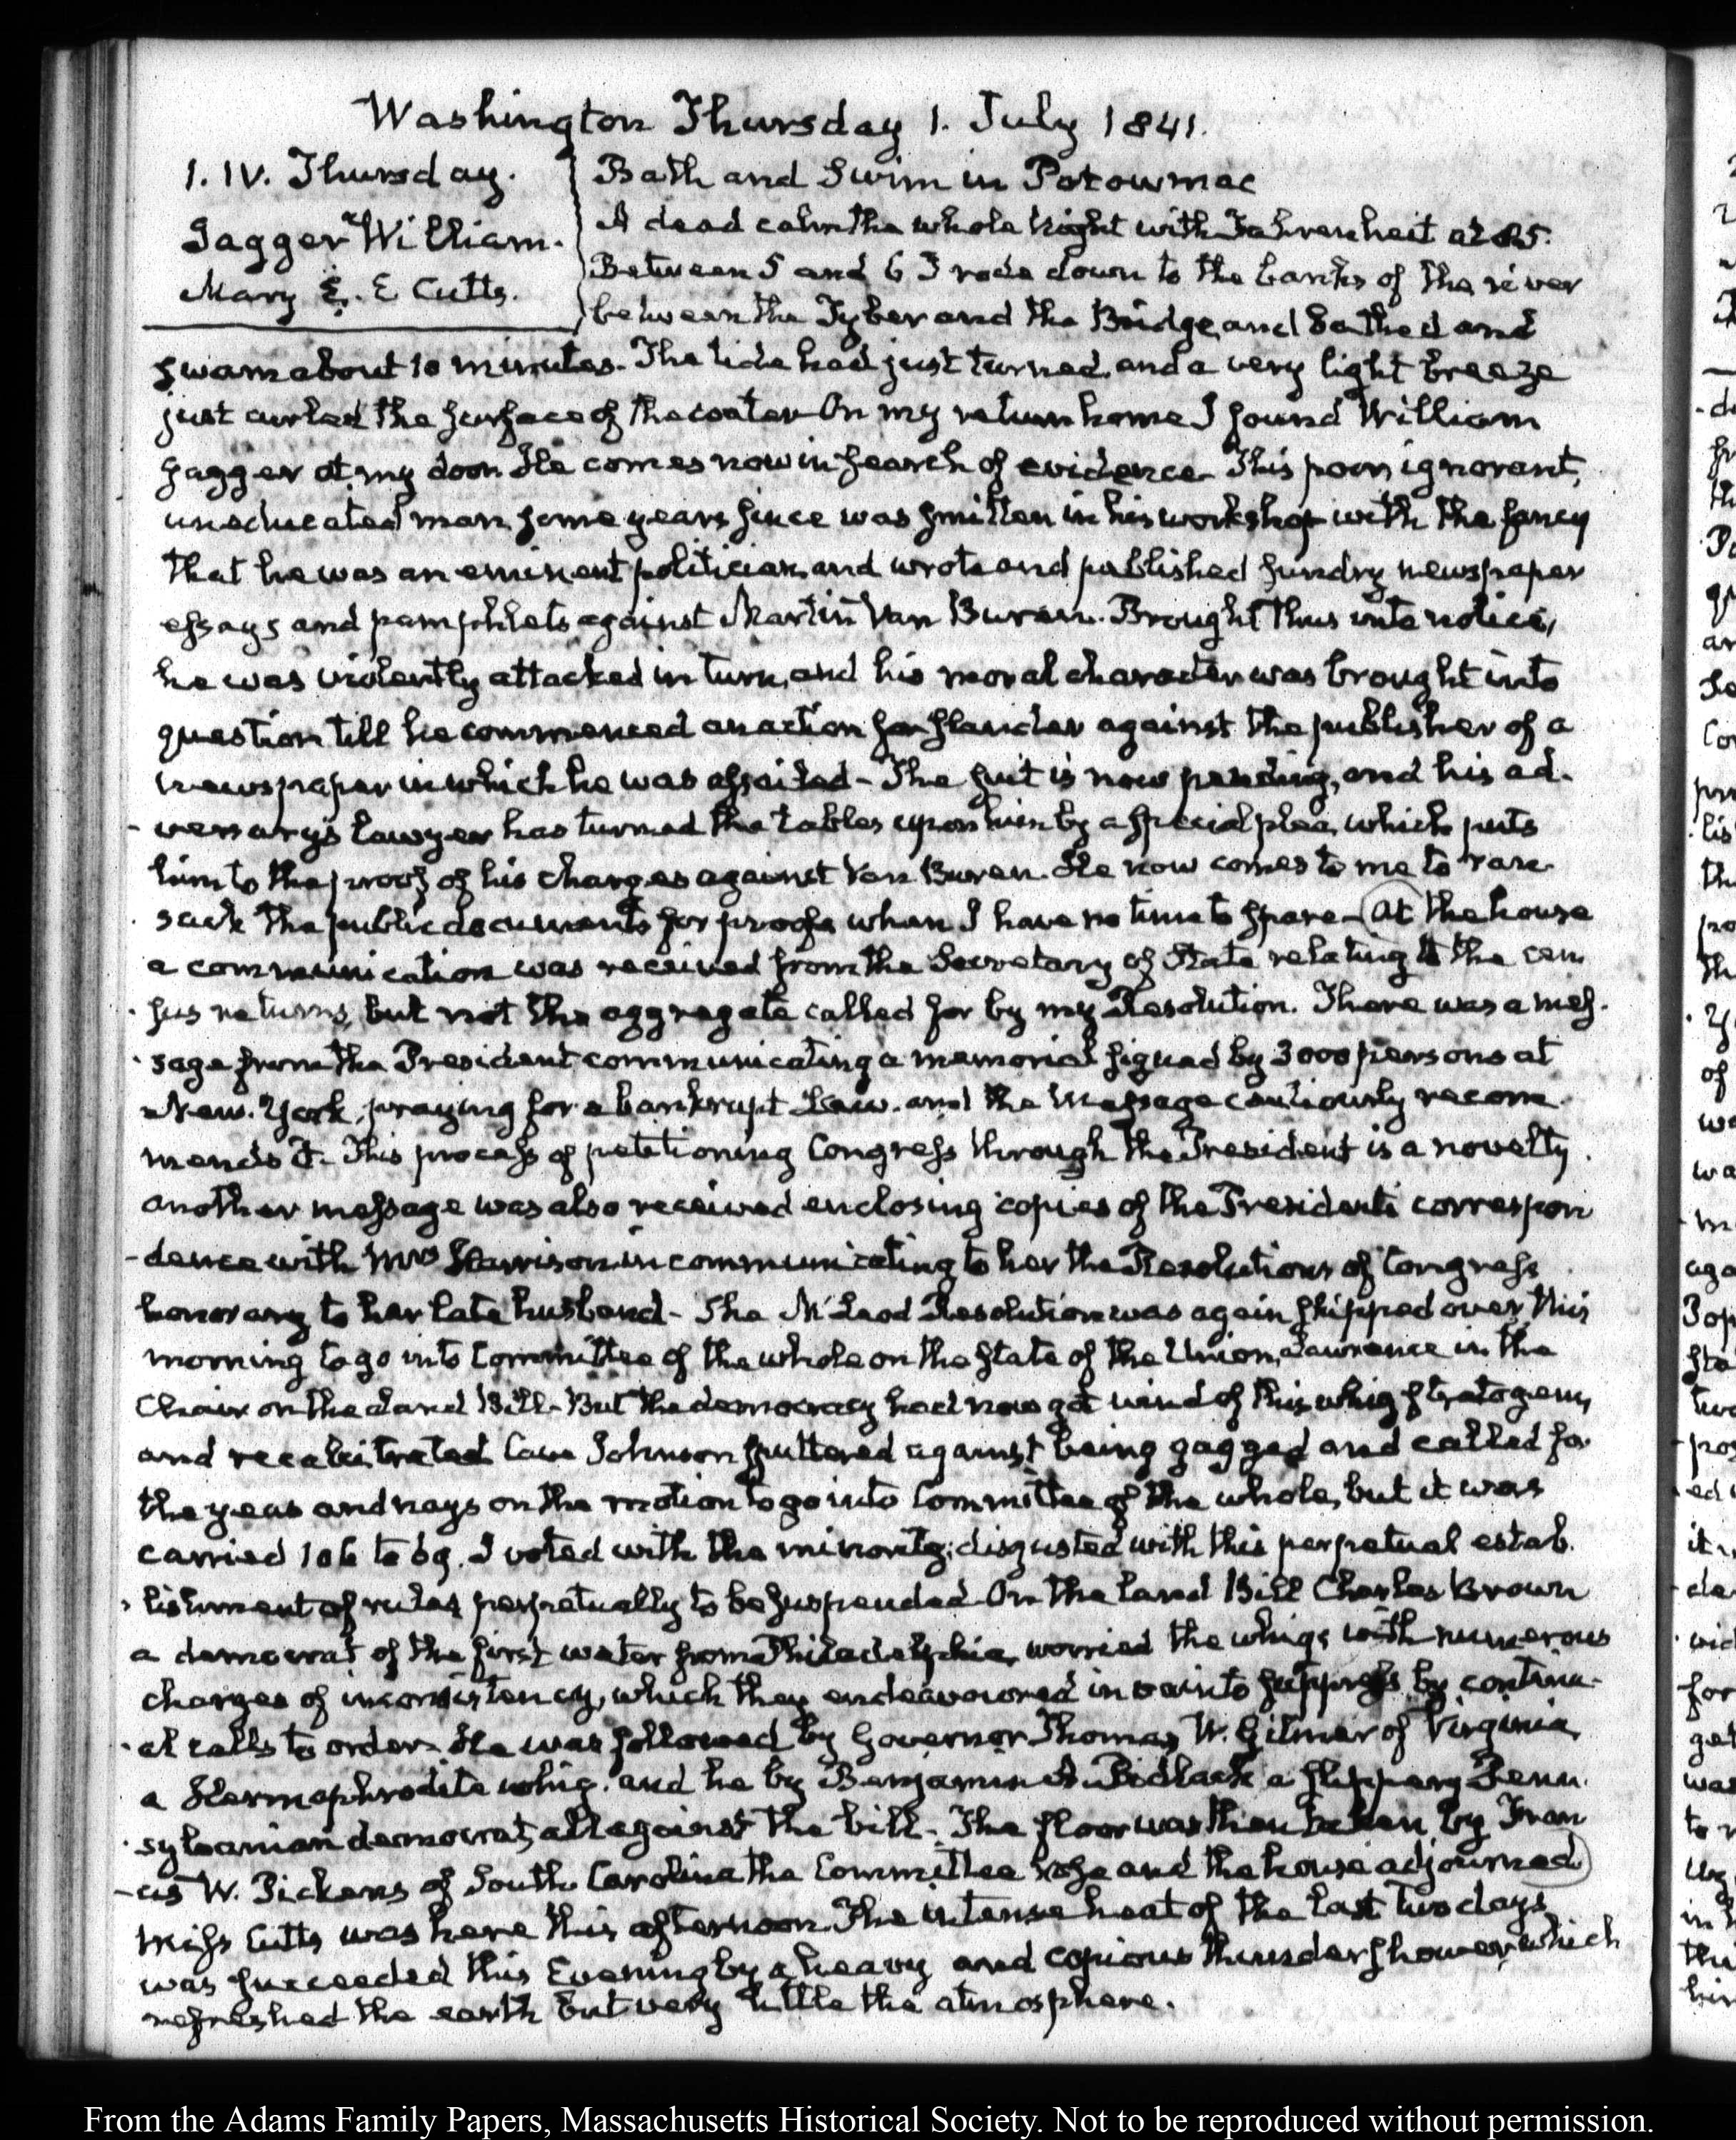 Washington Thursday 1. July 1841.
1. IV. Thursday.
Jagger William.
Mary E. E Cutts.
Bath and Swim in Potowmac
A dead calm the whole Night with Fahrenheit at 85.
Between 5 and 6 I rode down to the banks of the river
between the Tyber and the Bridge, and bathed and
swam about 10 minutes. The tide had just turned, and a very light breeze
just curled the surface of the water. On my return home I found William
Jagger at my door. He comes now in search of evidence. This poor, ignorant,
uneducated man some years since was smitten in his workshop with the fancy
that he was an eminent politician, and wrote and published sundry newspaper
essays and pamphlets against Martin Van Buren. Brought thus into notice,
he was violently attacked in turn, and his moral character was brought into
question till he commenced an action for slander against the publisher of a
newspaper in which he was assailed - The suit is now pending, and his ad-
-versary's lawyer has turned the tables upon him by a special plea, which puts
him to the proof of his charges against Van Buren. He now comes to me to ran-
sack the public documents for proofs when I have no time to spare - At the house
a communication was received from the Secretary of State relating to the cen
-sus returns, but not the aggregate called for by my Resolution. There was a mes-
-sage from the President communicating a memorial signed by 3000 persons at
New-York, praying for a bankrupt Law. and the Message cautiously recom-
mends it. This process of petitioning Congress through the President is a novelty.
another message was also received enclosing copies of the Presidents correspon
-dence with Mrs Harrison in communicating to her the Resolutions of Congress
honorary to her late husband - The McLeod Resolution was again skipped over this
morning to go into Committee of the whole on the State of the Union, Lawrence in the
Chair on the Land Bill - But the democracy had now got wind of this whig stratagem,
and recalcitrated. Cave Johnson sputtered against being gagged and called for
the yeas and nays on the motion to go into Committee of the whole, but it was
carried 106 to 69. I voted with the minority; disgusted with this perpetual estab-
-lishment of rules perpetually to be suspended. On the Land Bill Charles Brown
a democrat of the first water from Philadelphia, worried the whigs with numerous
charges of inconsistency, which they endeavoured in vain to suppress by continu-
-al calls to order. He was followed by Governor Thomas W. Gilmer of Virginia,
a Hermaphrodite whig, and he by Benjamin A. Bidlack a slippery Penn-
-sylvanian democrat, all against the bill - The floor was then taken by Fran
-cis W. Pickens of South Carolina the Committee rose and the house adjourned
Miss Cutts was here this afternoon. The intense heat of the last two days
was succeeded this Evening by a heavy and copious thunder shower, which
refreshed the earth but very little the atmosphere.
From the Adams Family Papers, Massachusetts Historical Society. Not to be reproduced without permission.